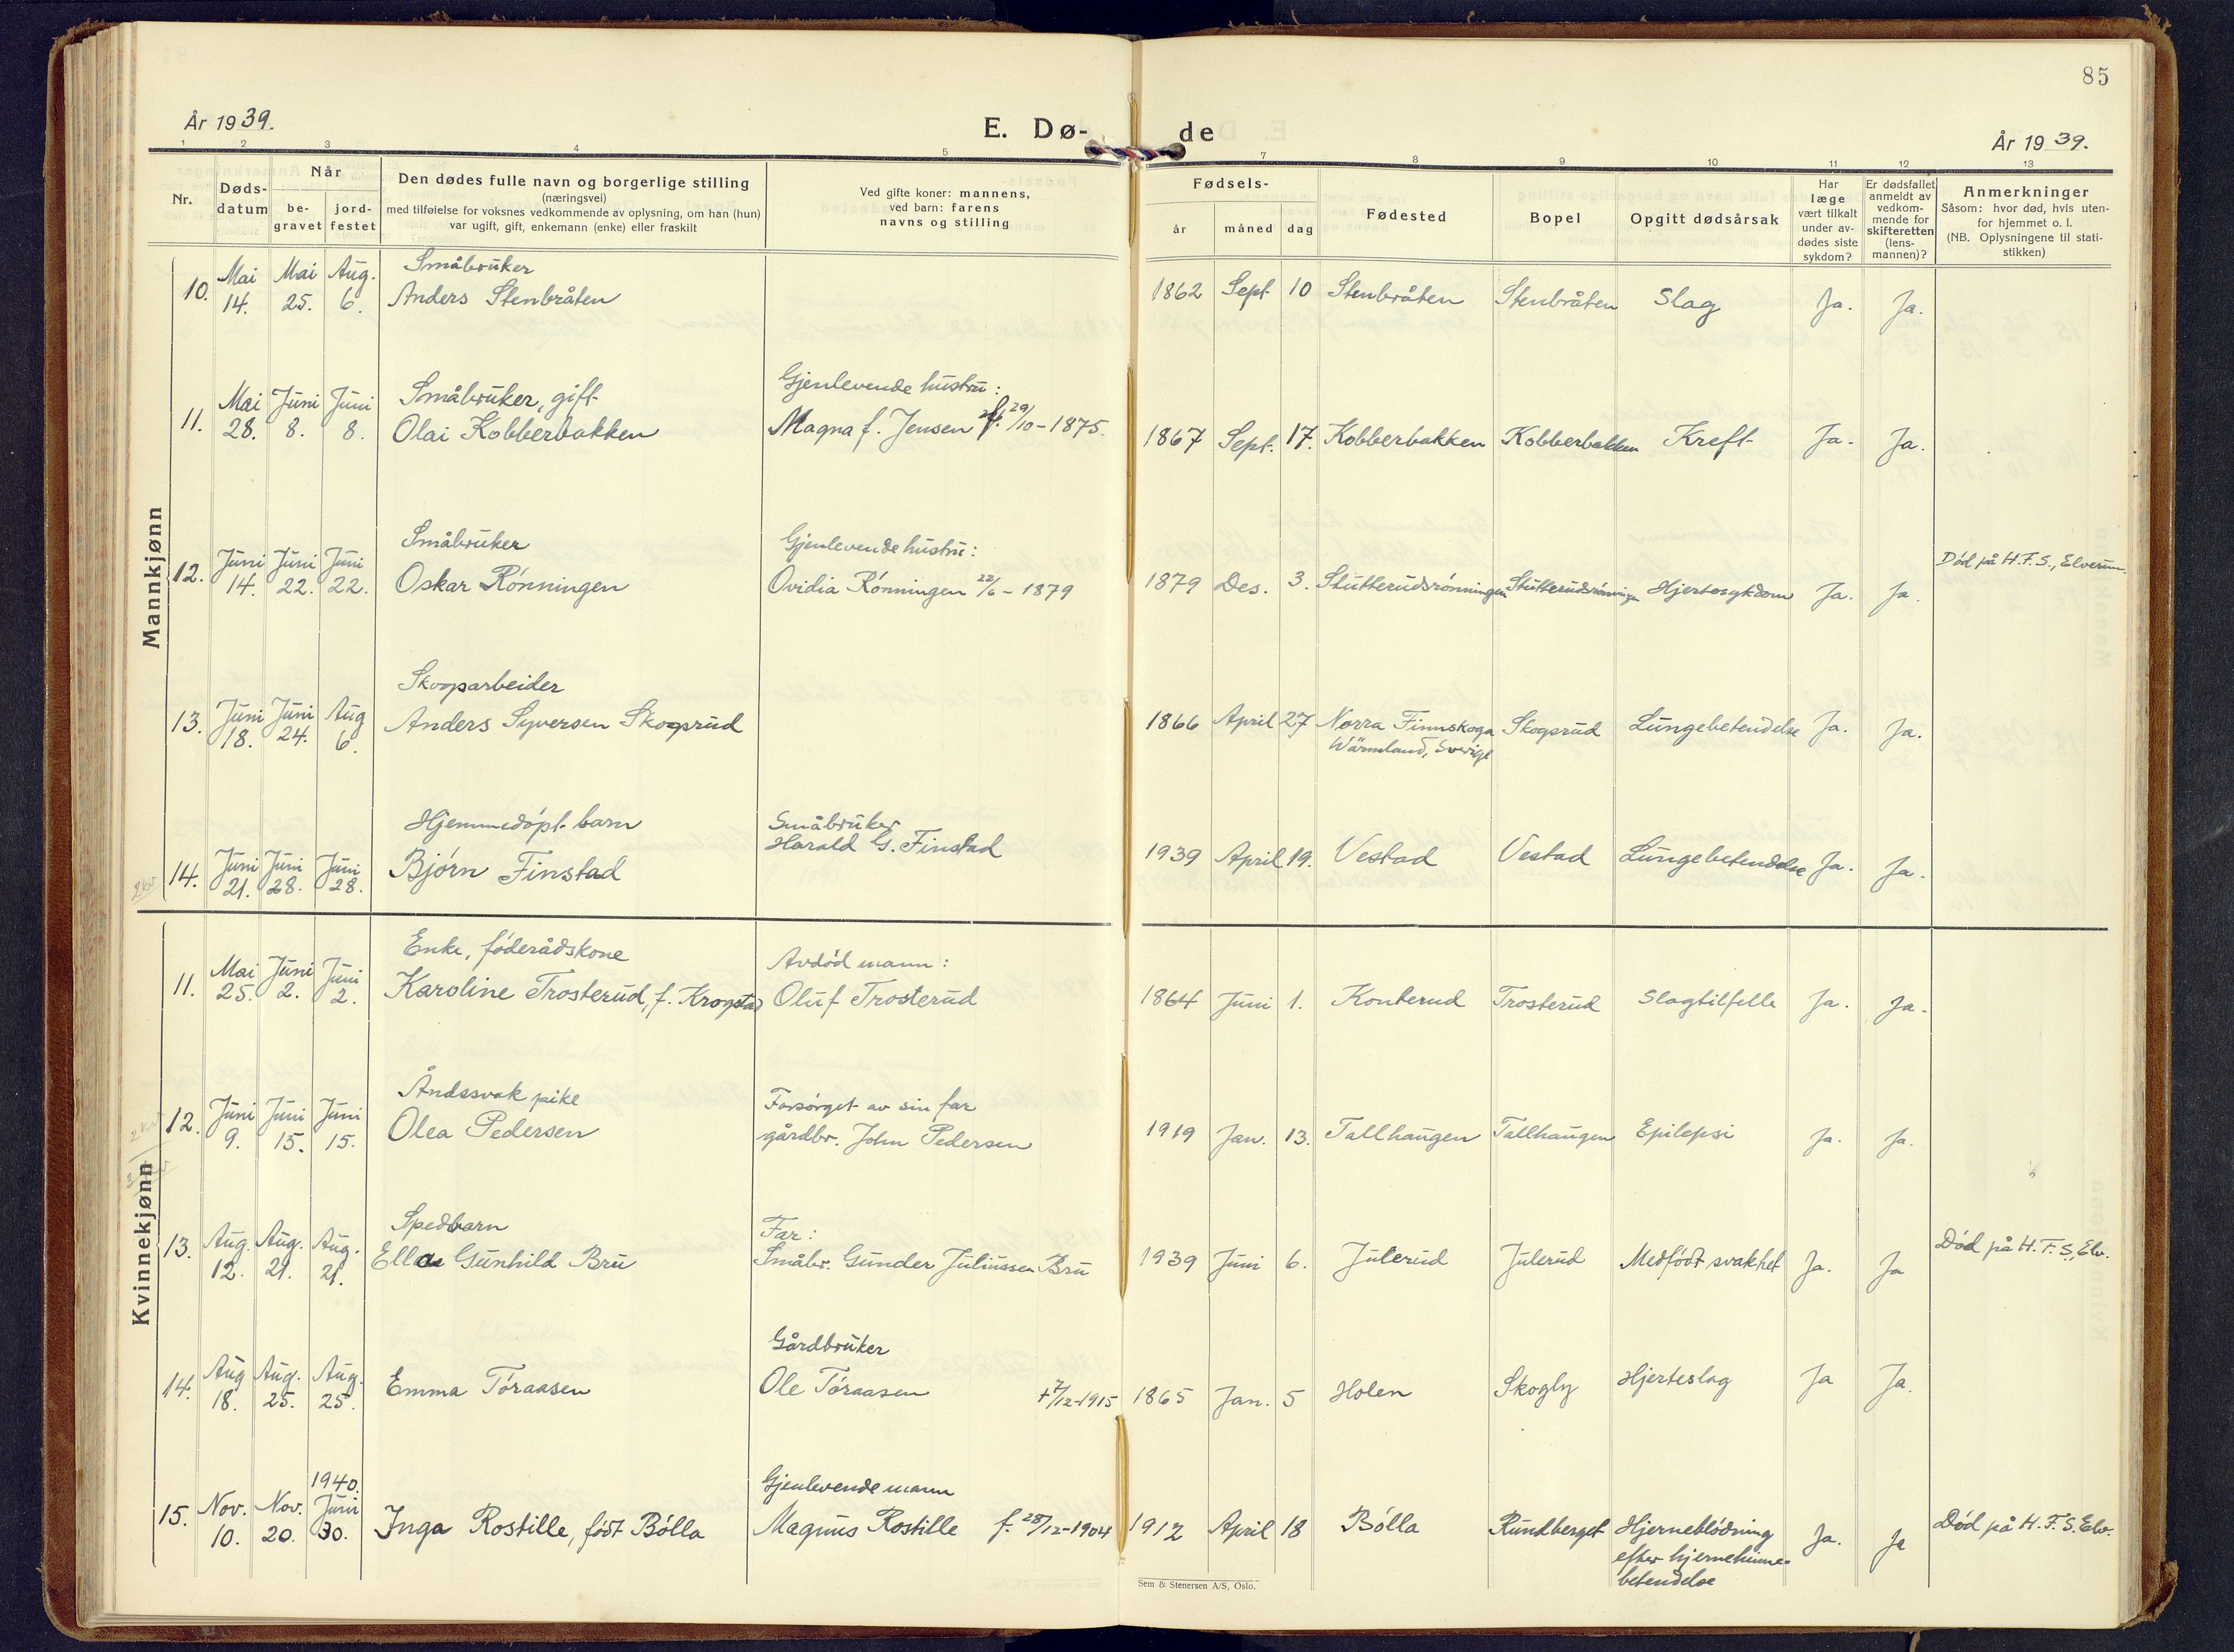 85
År 1939.
E. Dø-
de
År 1939.
1 2 3 4 5 7 8 9 10 11 12 13
Nr.
Døds-
datum
Når
be-
gravet
jord-
festet
Den dødes fulle navn og borgerlige stilling
(næringsvei)
med tilføielse for voksnes vedkommende av oplysning, om han (hun)
var ugift, gift, enkemann (enke) eller fraskilt
Ved gifte koner: mannens,
ved barn: farens
navns og stilling
Fødsels-
år måned dag
Fødested
Bopel
Opgitt dødsårsak
Har
læge
vært tilkalt
under av-
dødes siste
sykdom?
Er dødsfallet
anmeldt av
vedkom-
mende for
skifteretten
(lens-
mannen)?
Anmerkninger
Såsom: hvor død, hvis uten-
for hjemmet o. l.
(NB. Oplysningene til stati-
stikken)
Mannkjønn
Mai Mai Aug. Småbruker
10. 14. 25. 6. Anders Stenbråten 1862 Sept 10 Stenbråten Stenbråten Slag Ja. Ja.
Mai Juni Juni Småbruker, gift Gjenlevende hustru:
11. 28. 8. 8. Olai Kobberbakken Magna f. Jensen f. 29/10-1875. 1867 Sept. 17. Kobberbakken Kobberbakken Kreft Ja. Ja.
Juni Juni Juni Småbruker Gjenlevende hustru: Død på H.F.S., Elverum.
12. 14. 22. 22. Oskar Rønningen Ovidia Rønningen 22/6-1879 1879 Des. 3. Stutterudsrønningen Stutterudsrønningen Hjertesykdom Ja. Ja.
Skogsarbeider
13. Juni Juni Aug Anders Syversen Skogsrud 1866 April 27 Norra Finnskoga Skogsrud Lungebetendelse Ja. Ja.
18. 24. 6. Wärmland, Sverige
Hjemmedøpt barn Småbruker
Harald G. Finstad
14. Juni Juni Juni Bjørn Finstad 1939 April 19. Vestad Vestad Lungebetendelse Ja. Ja.
21. 28. 28.
Kvinnekjønn
Enke, føderådskone Avdød mann:
11. Mai Juni Juni Karoline Trosterud, f. Krogstad Oluf Trosterud 1864 Juni 1. Konterud Trosterud Slagtilfelle Ja. Ja.
25. 2. 2.
Åndssvak pike Forsørget av sin far
12. Juni Juni Juni Olea Pedersen gårdbr. John Pedersen 1919 Jan. 13. Tallhaugen Tallhaugen Epilepsi Ja. Ja.
9. 15. 15.
Spedbarn Far: Død på H.F.S., Elv.
13. Aug. Aug. Aug. Ella Gunhild Bru Småbr. Gunder Juliussen Bru 1939 Juni 6. Julerud Julerud Medfødt svakhet Ja. Ja
12. 21. 21.
Gårdbruker
14. Aug Aug. Aug. Emma Tøraasen Ole Tøraasen +7/12-1915 1865 Jan. 5 Holen Skogly Hjerteslag Ja Ja.
18. 25. 25.
1940. Gjenlevende mann
15. Nov. Nov. Juni Inga Rostille, født Bølla Magnus Rostille f. 28/12-1904 1912 April 18 Bølla Rundberget Hjerneblødning Ja. Ja Død på H.F.S. Elv.
10. 20. 30. efter hjernehinne-
betendelse
Sem & Stenersen A/S, Oslo.